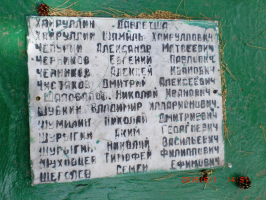 ХАЙРУЛЛИН ДАВЛЕТША
ХАЙРУЛЛИН ШАМИЛЬ ХАЙРУЛЛОВИЧ
ЧЕПУРКИН АЛЕКСАНДР МАТВЕЕВИЧ
ЧЕРНИКОВ ЕВГЕНИЙ ПАВЛОВИЧ
АЛЕКСЕЙ ИВАНОВИЧ
ЧИСТЯКОВ ДМИТРИЙ АЛЕКСЕЕВИЧ
ШАПОВАЛОВ НИКОЛАЙ ИВАНОВИЧ
ШУБКИН ВЛАДИМИР ИЛЛАРИОНОВИЧ
ШУМИЛИН НИКОЛАЙ ДМИТРИЕВИЧ
ШУРЫГИН ЕКИМ ГЕОРГИЕВИЧ
ШУРЫГИН НИКОЛАЙ ВАСИЛЬЕВИЧ
ТИМОФЕЙ ФИЛИППОВИЧ
ЩЕГОЛЕВ СЕМЕН ЕФИМОВИЧ